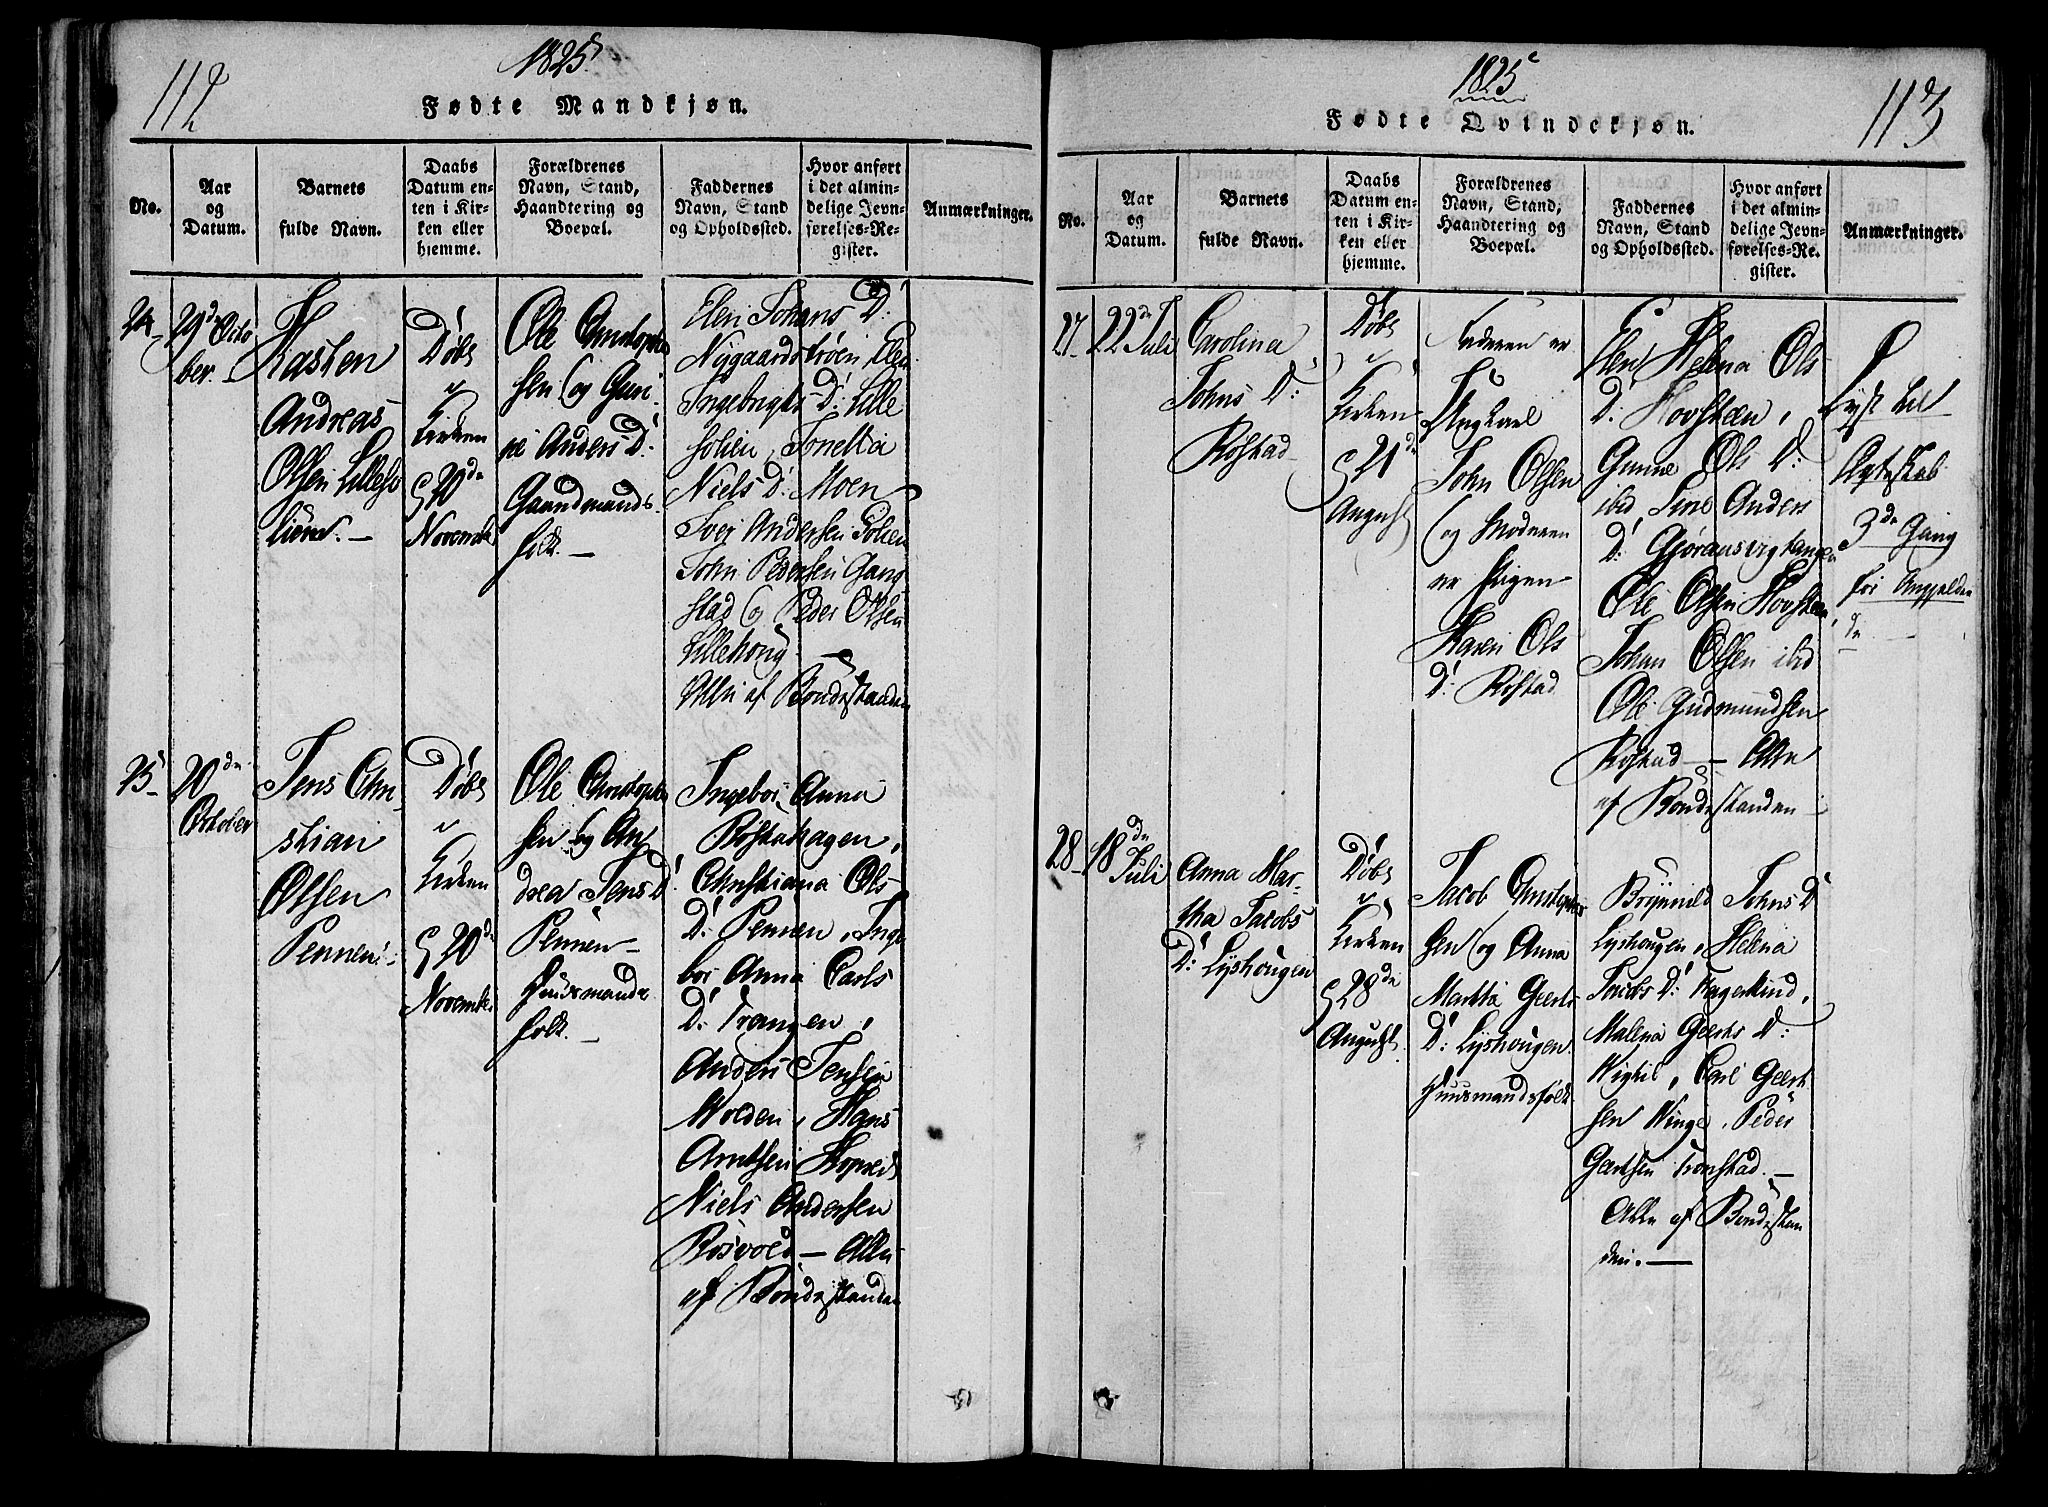 112
1825
Fødte Mandkjøn.
No.
Aar
og
Datum.
Barnets
fulde Navn.
Daabs
Datum en-
ten i Kir-
ken eller
hjemme.
Forældrenes
Navn, Stand,
Haandtering og
Boepæl.
Faddernes
Navn, Stand
og Opholdssted.
Hvor anført
i det almin-
delige Jevn-
førelses-Re-
gister.
Anmærkninger.
24
29de Octo
ber.
Kasten
Andreas
Olsen Lilleso
liene. —
Døbt
i
Kirken
d 20de
Novembr
Ole Christoph
sen og Guri
Anders D:
Gaardmands
folk. —
Elen Johans D:
Nygaardskrøen Elen
Ingebrigts D: Lille
solien, Tonetta
Niels D: Moen
Iver Andersen Solien
John Pedersen Gang
stad og Peder Olsen
Lillehoug —
Alle af Bondestanden
25
20de
October
Jens Chri
stian
Olsen
Pennen:
Døbt
i
Kirken
d 20de
November
Ole Christoph
sen og An
drea Jens D:
Pennen
Huusmands
folk. —
Ingebor Anna
Røstahagen,
Christiana Ols
D: Pennen, Inge
bor Anna Carls
D: Trangen,
Anders Jensen
Wolden, Hans
Arntsen
Niels Andersen
Rosvold — Alle
af Bondestanden
1825
113
Fødte Qvindekjøn.
No.
Aar
og
Datum.
Barnets
fulde Navn.
Daabs
Datum en-
ten i Kir-
ken eller
hjemme.
Forældrenes
Navn, Stand,
Haandtering og
Boepæl.
Faddernes
Navn, Stand
og Opholdssted.
Hvor anført
i det almin-
delige Jevn-
førelses-Re-
gister.
Anmærkninger.
27
22de Juli
Carolina
Johns D:
Røstad
Døbt
i
Kirken
d 21de
August
Faderen er
Ungkarl
John Olsen
og Moderen
er Pigen
Karen Ols
D: Røstad
Elen Helena Ols
D: Hovstæn,
Gunne Ols D:
ibd Sine Anders
D: Gjøransvigtangen
Ole Olsen Hovstæn
Johan Olsen ibd
Ole Gudmundsen
Røstad — Alle
af Bondestanden
Lyst til
Ægteskab
3de Gang
for
28
18de
Juli
Anna Mar-
tha Jacobs
D: Lyshougen
Døbt
i
Kirken
d 28de
August
Jacob Christoph
sen og Anna
Martha Geerts
D: Lyshougen.
Huusmandsfolk
Brynnild Johns D
Lyshougen, Helena
Jacobs D: Fagerlund,
Malena Geerts D:
Wigtil, Carl Geert
sen Winge, Peder
Geertsen Tronstad. —
Alle af Bondestan
den. —